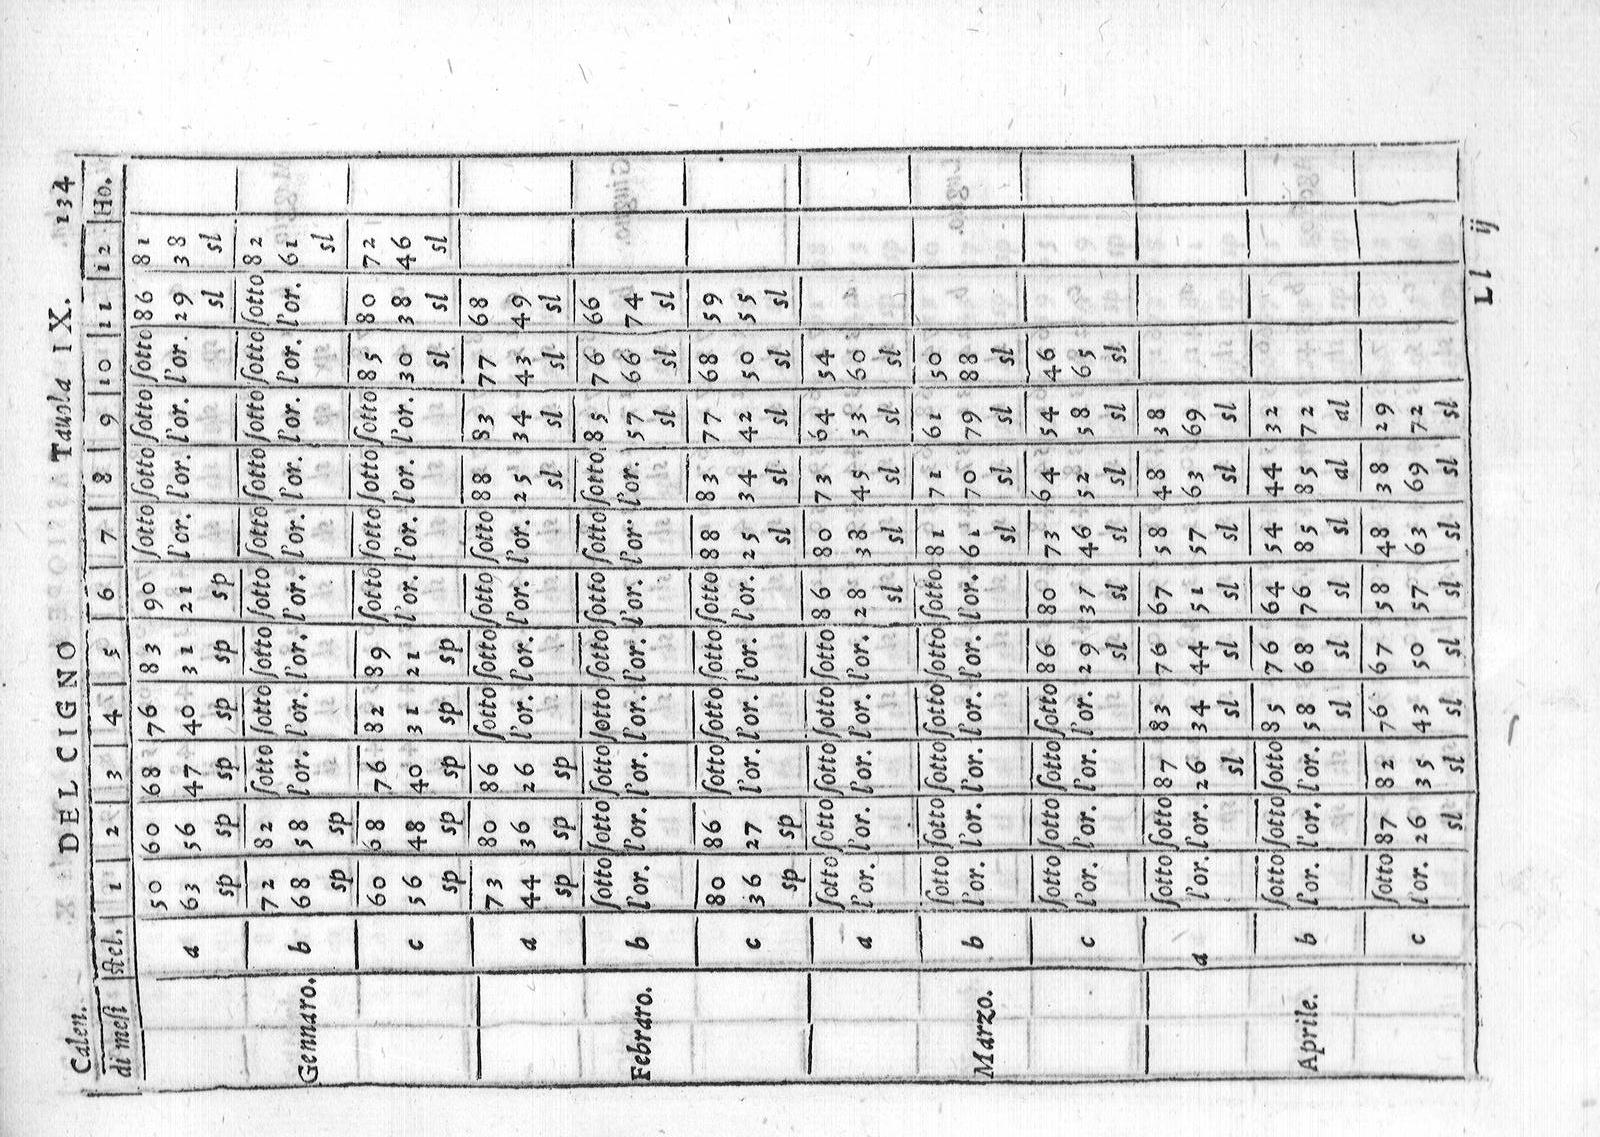 DEL CIGNO Tauola IX. 134
Calen.
di meſi ſtel. 1 2 3 4 5 6 7 8 9 10 11 12 Ho.
50 60 68 76 83 90 ſotto ſotto ſotto ſotto 86 81
a 63 56 47 40 31 21 l'or. l'or. l'or. l'or. 29 38
sp sp sp sp sp sp sl sl
72 82 ſotto ſotto ſotto ſotto ſotto ſotto ſotto ſotto ſotto 82
Gennaro. b 68 58 l'or. l'or. l'or. l'or. l'or. l'or. l'or. l'or. l'or. 61
sp sp sl
60 68 76 82 89 ſotto ſotto ſotto ſotto 85 80 72
c 56 48 40 31 21 l'or. l'or. l'or. l'or. 30 38 46
sp sp sp sp sp sl sl sl
73 80 86 ſotto ſotto ſotto ſotto 88 83 77 68
a 44 36 26 l'or. l'or. l'or. l'or. 25 34 43 49
sp sp sp sl sl sl sl
ſotto ſotto ſotto ſotto ſotto ſotto ſotto ſotto 85 76 66
Febraro. b l'or. l'or. l'or. l'or. l'or. l'or. l'or. l'or. 57 66 74
sl sl sl
80 86 ſotto ſotto ſotto ſotto 88 83 77 68 59
c 36 27 l'or. l'or. l'or. l'or. 25 34 42 50 55
sp sp sl sl sl sl sl
ſotto ſotto ſotto ſotto ſotto 86 80 73 64 54
a l'or. l'or. l'or. l'or. l'or. 28 38 45 53 60
sl sl sl sl sl
ſotto ſotto ſotto ſotto ſotto ſotto 81 71 61 50
Marzo. b l'or. l'or. l'or. l'or. l'or. l'or. 61 70 79 88
sl sl sl sl
ſotto ſotto ſotto ſotto 86 80 73 64 54 46
c l'or. l'or. l'or. l'or. 29 37 46 52 58 65
sl sl sl sl sl sl
ſotto ſotto 87 83 76 67 58 48 38
a l'or. l'or. 26 34 44 51 57 63 69
sl sl sl sl sl sl sl
ſotto ſotto ſotto 85 76 64 54 44 32
Aprile. b l'or. l'or. l'or. 58 68 76 85 85 72
sl sl sl sl al al
ſotto 87 82 76 67 58 48 38 29
c l'or. 26 35 43 50 57 63 69 72
sl sl sl sl sl sl sl sl
Ll ij